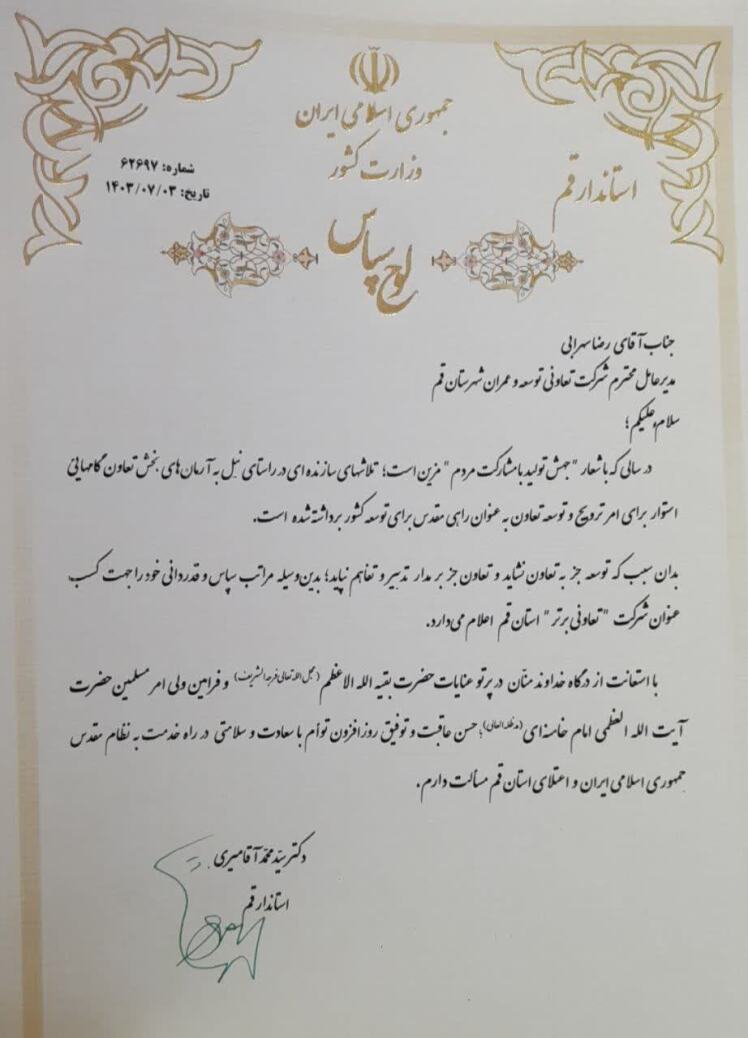 جمهوری اسلامی ایران
وزارت کشور
استاندار قم
شماره: ۶۲۶۹۷
تاریخ: ۱۴۰۳/۰۷/۰۳
لوح سپاس
جناب آقای رضا سهرابی
مدیرعامل محترم شرکت تعاونی توسعه و عمران شهرستان قم
سلام علیکم؛
در سالی که با شعار "جهش تولید با مشارکت مردم" مزین است؛ تلاشهای سازنده ای در راستای نیل به آرمان‌های بخش تعاون گامهایی
استوار برای امر ترویج و توسعه تعاون به عنوان راهی مقدس برای توسعه کشور برداشته شده است.
بدان سبب که توسعه جز به تعاون نشاید و تعاون جز بر مدار تدبیر و تفاهم نپاید؛ بدین‌وسیله مراتب سپاس و قدردانی خود را جهت کسب
عنوان شرکت "تعاونی برتر" استان قم اعلام می‌دارد.
با استعانت از درگاه خداوند منّان در پرتو عنایات حضرت بقیه الله الاعظم (عجل الله تعالی فرجه الشریف) و فرامین ولی امر مسلمین حضرت
آیت الله العظمی امام خامنه‌ای (مدظله العالی)؛ حسن عاقبت و توفیق روزافزون توأم با سعادت و سلامتی در راه خدمت به نظام مقدس
جمهوری اسلامی ایران و اعتلای استان قم مسألت دارم.
دکتر سیّد محمّد آقامیری
استاندار قم